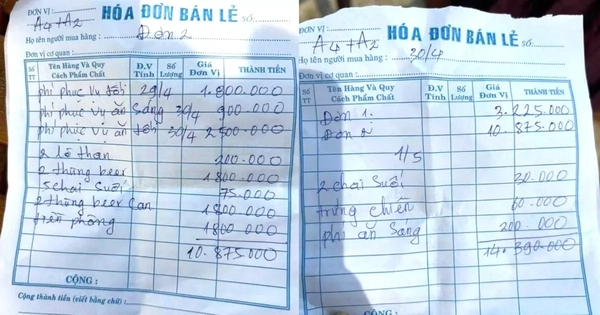 ĐƠN VỊ:
A4+A2
HÓA ĐƠN BÁN LẺ SỐ:
Họ tên người mua hàng: Đơn 2
Đơn vị cơ quan:
Số TT Tên Hàng Và Quy Cách Phẩm Chất Đ.V Tính Số Lượng Giá Đơn Vị THÀNH TIỀN
phí phục vụ tối 29/4 1.800.000
phí phục vụ ăn sáng 30/4 900.000
phí phục vụ ăn tối 30/4 2500.000
2 lò than 200.000
2 thùng beer 1800.000
5 chai suối 75.000
2 thùng beer can 1800.000
tiền phòng 1800.000
10.875.000
CỘNG:
Cộng thành tiền (viết bằng chữ):
ĐƠN VỊ:
A4+A2
HÓA ĐƠN BÁN LẺ SỐ:
Họ tên người mua hàng: 30/4
Đơn vị cơ quan:
Số TT Tên Hàng Và Quy Cách Phẩm Chất Đ.V Tính Số Lượng Giá Đơn Vị THÀNH TIỀN
Đơn 1. 3.225.000
Đơn 2 10.875.000
1/5
2 chai suối 30.000
trứng chiên 60.000
phí ăn sáng 200.000
14.390.000
CỘNG: